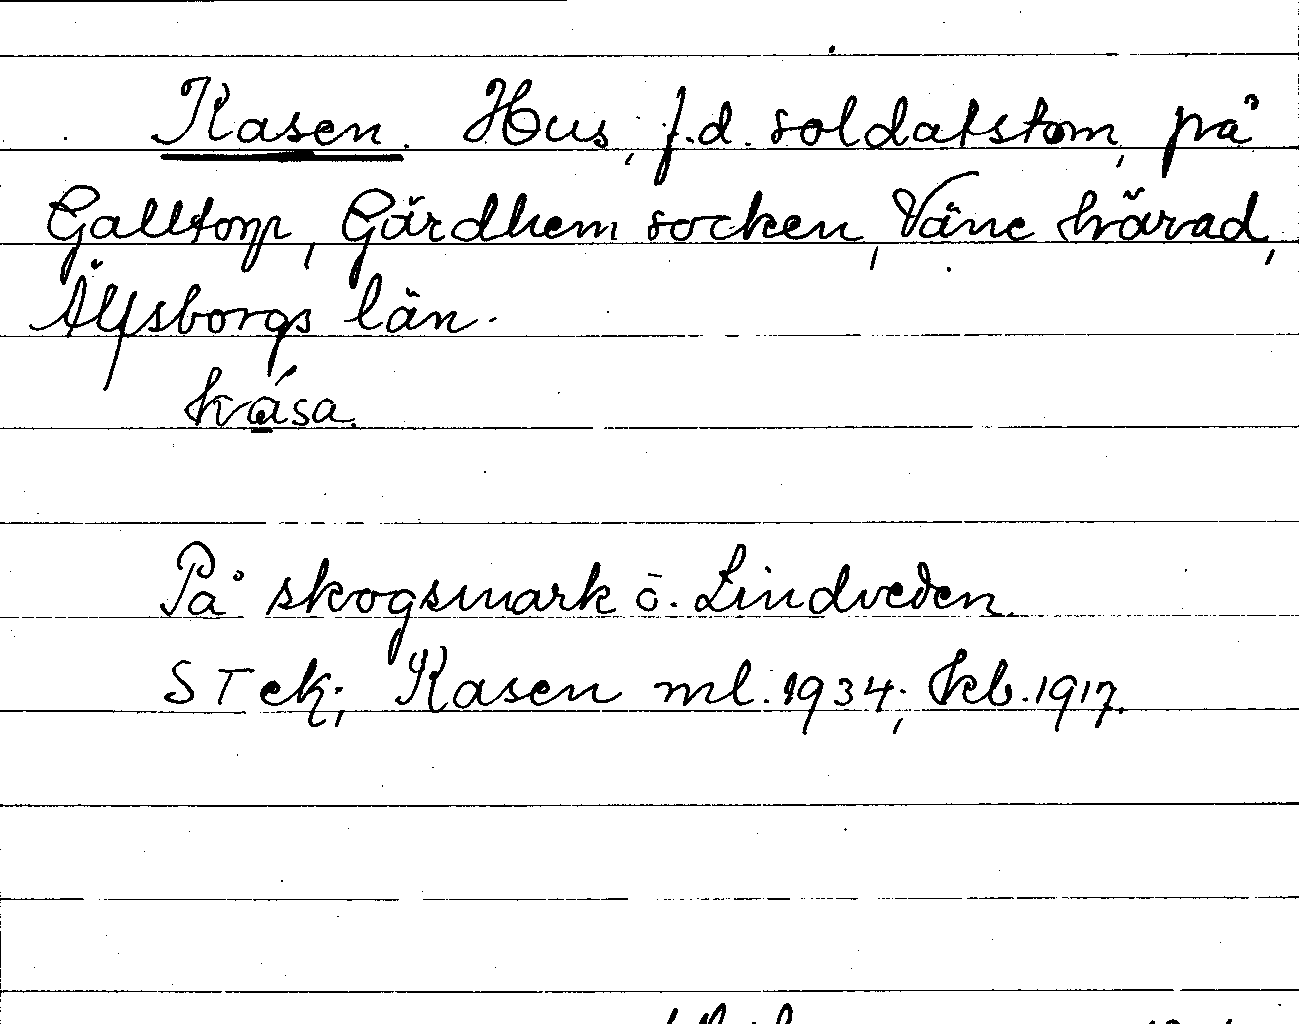 Kasen. Hus, f.d. soldatstom, på
Galltorp, Gärdhem socken, Väne härad,
Älfsborgs län.
kása.
På skogsmark ö. Lindveden.
S T ek; Kasen ml. 1934; kb. 1917.